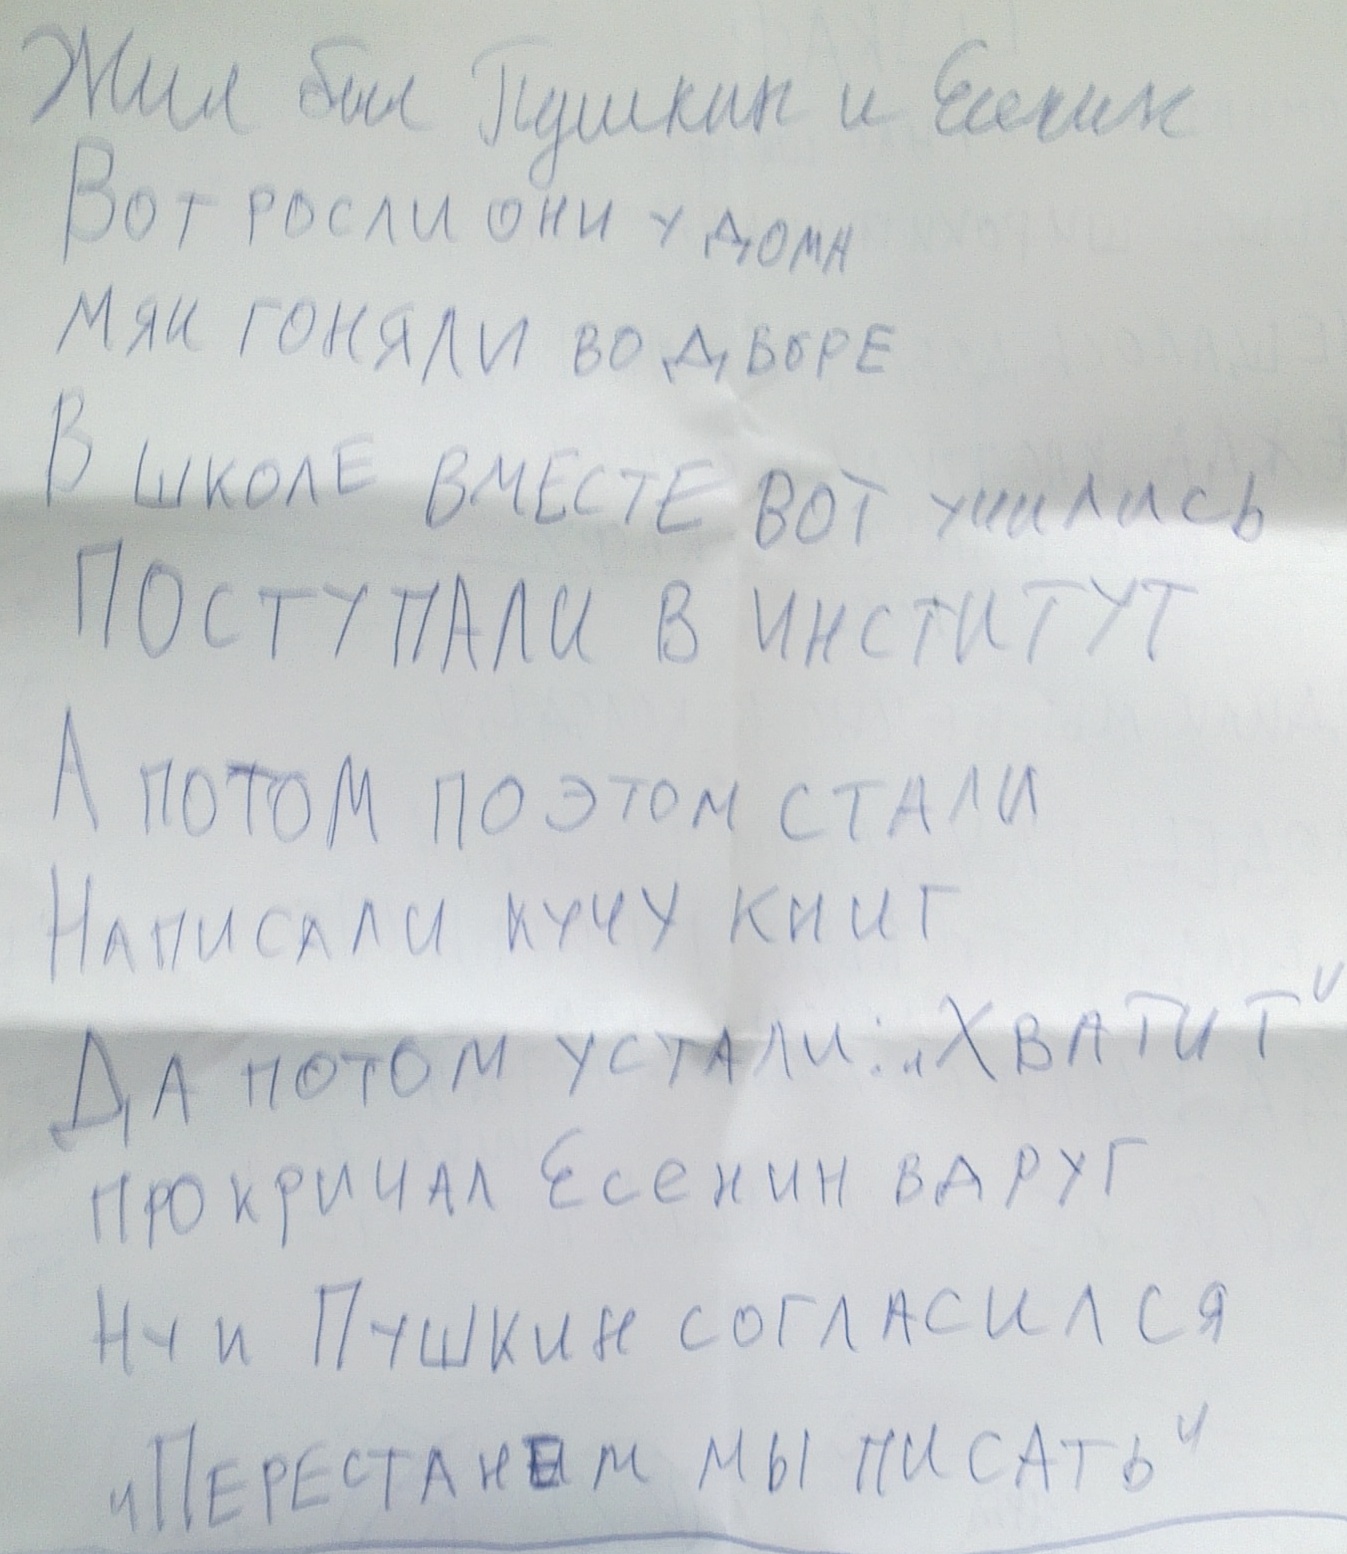 Жил был Пушкин и Есенин
Вот росли они у дома
мяч гоняли во дворе
В школе вместе вот учились
Поступали в институт
А потом поэтом стали
Написали кучу книг
Да потом устали: „Хватит"
прокричал Есенин вдруг
Ну и Пушкин согласился
„Перестанем мы писать"